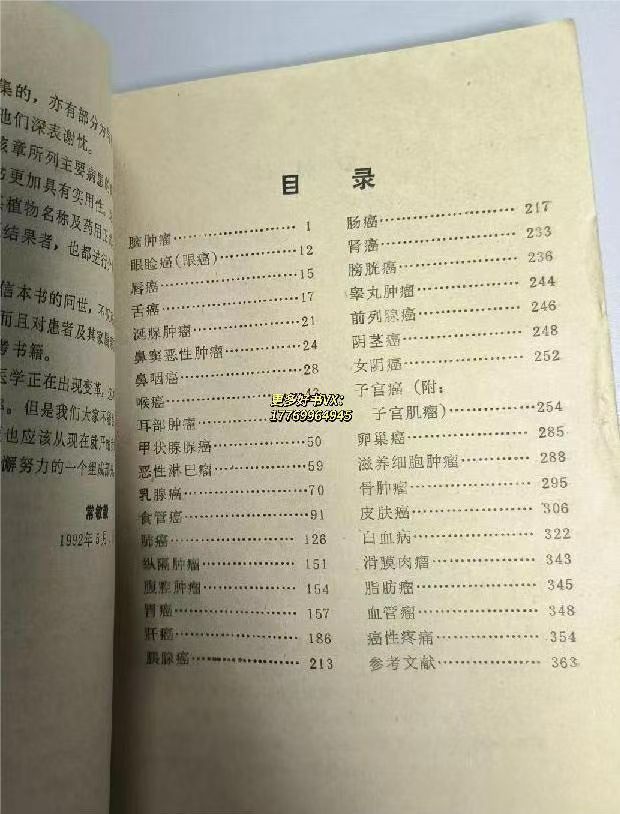 集的，亦有部分为
他们深表谢忱。
该章所列主要病患的
书更加具有实用性，
植物名称及药用
结果者，也都进行
信本书的问世，不
而且对患者及其家属
考书籍。
医学正在出现变革，
。但是我们大家不
也应该从现在就开始
懈努力的一个组成部
常敏毅
1992年5月
目 录
脑肿瘤 1
眼睑癌(眼癌) 12
唇癌 15
舌癌 17
涎腺肿瘤 21
鼻窦恶性肿瘤 24
鼻咽癌 28
喉癌 43
耳部肿瘤
甲状腺癌 50
恶性淋巴瘤 59
乳腺癌 70
食管癌 91
肺癌 126
纵隔肿瘤 151
腹腔肿瘤 154
胃癌 157
肝癌 186
胰腺癌 213
肠癌 217
肾癌 233
膀胱癌 236
睾丸肿瘤 244
前列腺癌 246
阴茎癌 248
女阴癌 252
子宫癌(附：
子宫肌瘤) 254
卵巢癌 285
滋养细胞肿瘤 288
骨肿瘤 295
皮肤癌 306
白血病 322
滑膜肉瘤 343
脂肪瘤 345
血管瘤 348
癌性疼痛 354
参考文献 363
更多好书VX:
17769964945